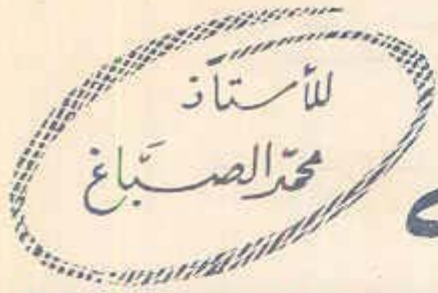 للأستاذ
محمّد الصبَّاغ